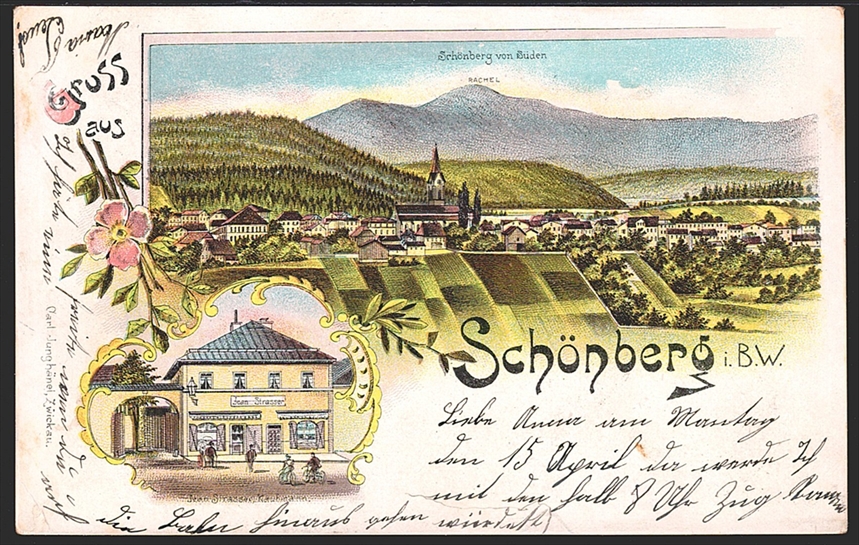 Gruss
aus
Schönberg von Süden
RACHEL
Schönberg i. B.W.
Jean Strasser
Jean Strasser, Kaufmann.
Carl Junghänel, Zwickau.
Liebe Anna am Mantag
den 15 April da werde Ich
mit den halb 8 Uhr Zug
die Bahn hinaus gehen würdest
Maria